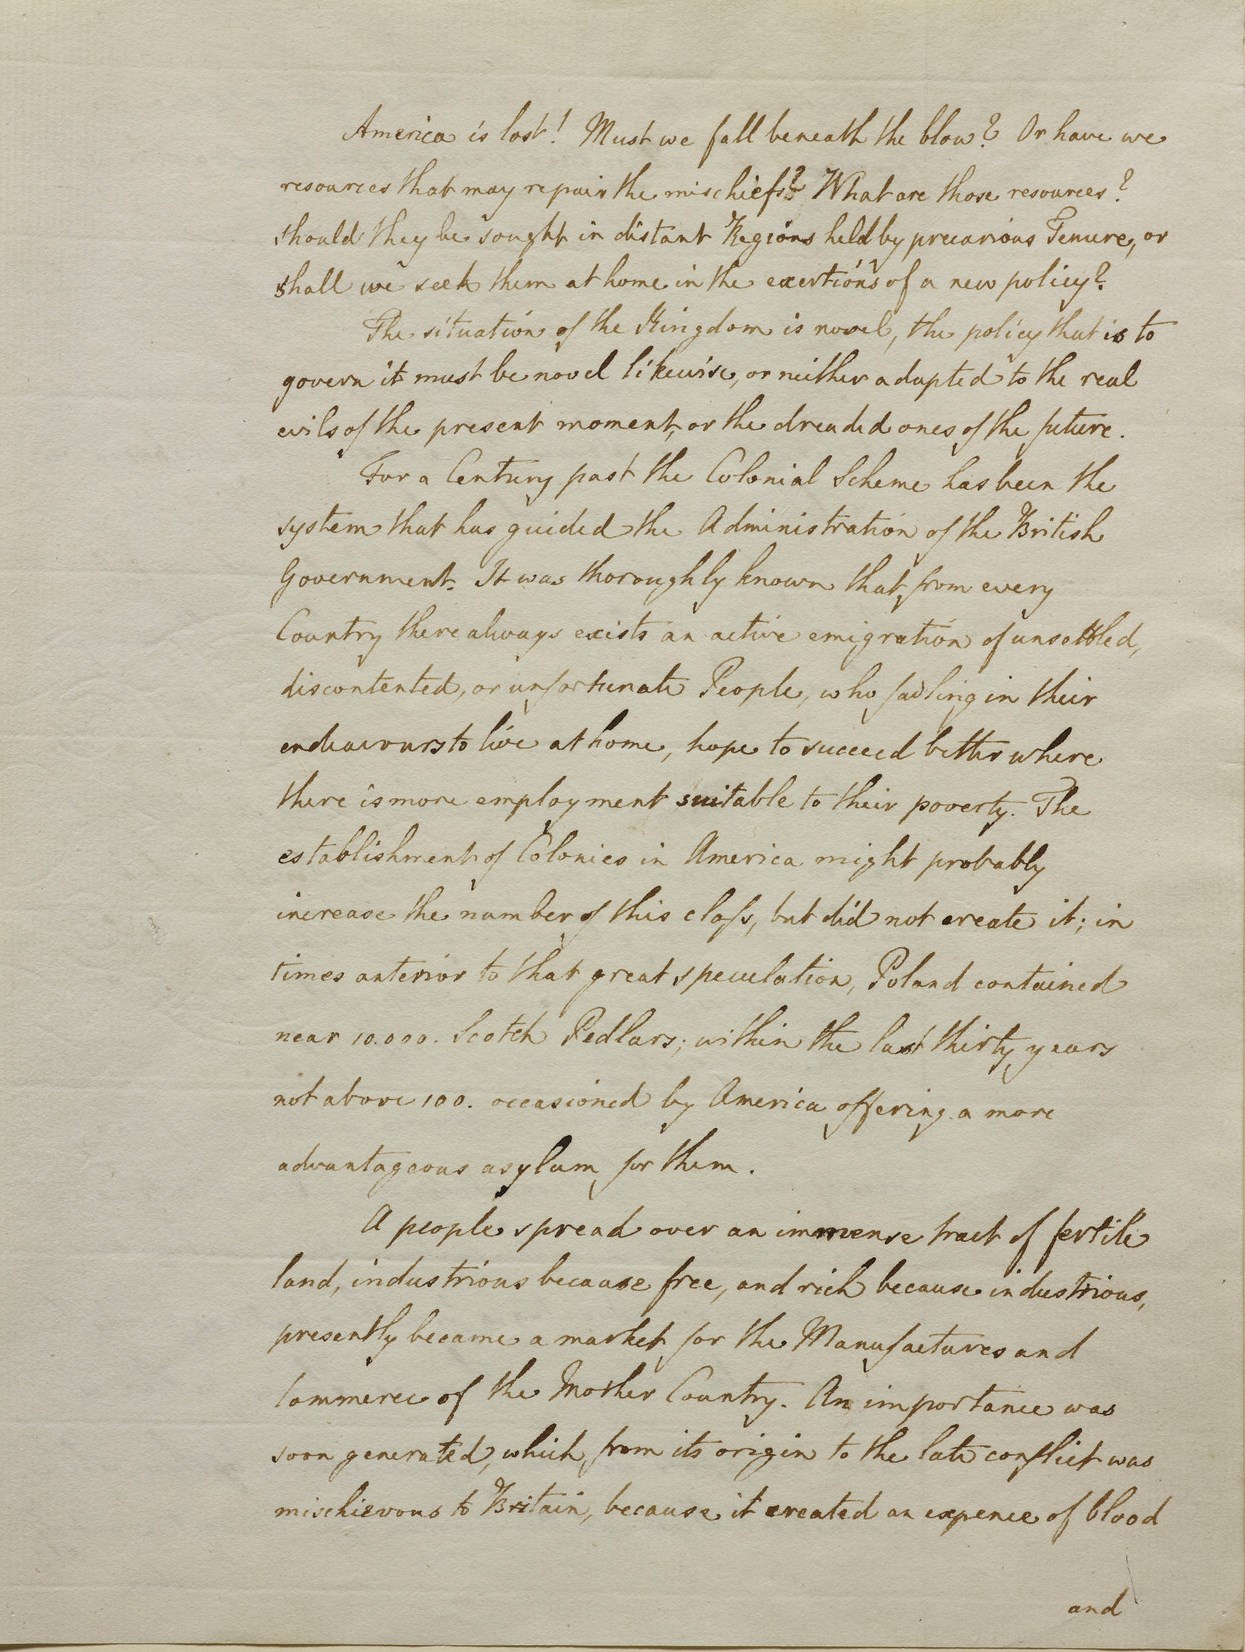 America is lost! Must we fall beneath the blow? Or have we
resources that may repair the mischiefs? What are those resources?
should they be sought in distant Regions held by precarious Tenure, or
shall we seek them at home in the exertions of a new policy?
The situation of the Kingdom is novel, the policy that is to
govern it must be novel likewise, or neither adapted to the real
evils of the present moment, or the dreaded ones of the future.
For a Century past the Colonial Scheme has been the
system that has guided the Administration of the British
Government. It was thoroughly known that from every
Country there always exists an active emigration of unsettled,
discontented, or unfortunate People, who failing in their
endeavours to live at home, hope to succeed better where
there is more employment suitable to their poverty. The
establishment of Colonies in America might probably
increase the number of this class, but did not create it; in
times anterior to that great speculation, Poland contained
near 10.000. Scotch Pedlars; within the last thirty years
not above 100. occasioned by America offering a more
advantageous asylum for them.
A people spread over an immense tract of fertile
land, industrious because free, and rich because industrious,
presently became a market for the Manufactures and
Commerce of the Mother Country. An importance was
soon generated, which from its origin to the late conflict was
mischievous to Britain, because it created an expence of blood
and